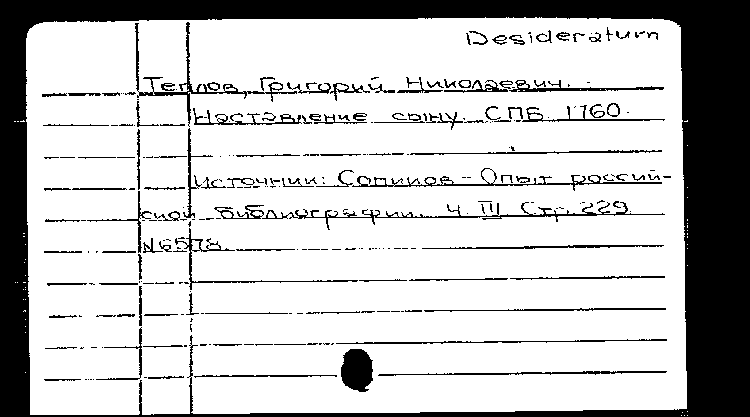 Desideratum
Теплов, Григорий Николаевич.
Наставление сыну. СПБ 1760.
Источник: Сопиков - Опыт россий-
ской библиографии. Ч. III Стр. 229
№6578.